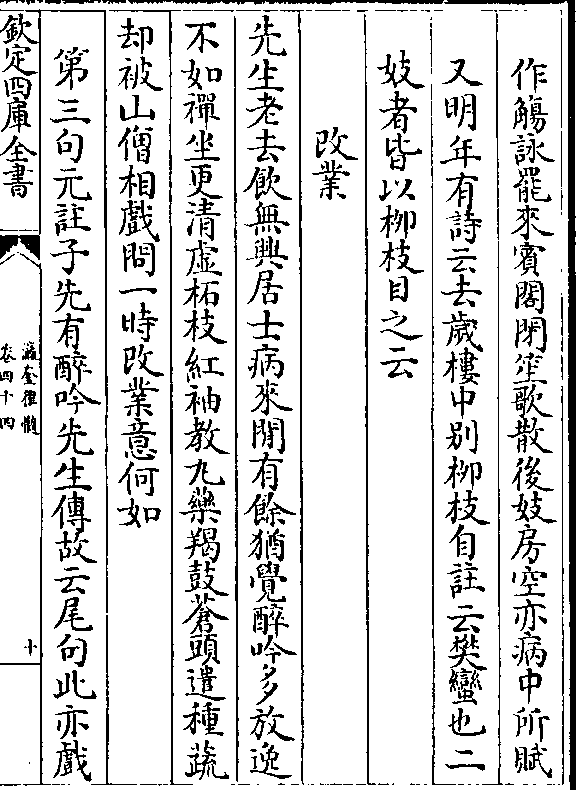 作觴詠罷來賓閣閉笙歌散後妓房空亦病中所賦
又明年有詩云去歲樓中别柳枝自註云樊蠻也二
妓者皆以柳枝目之云
改業
先生老去飲無興居士病來閒有餘猶覺醉吟多放逸
不如禪坐更清虛柘枝紅袖教丸藥羯鼓蒼頭遣種蔬
却被山僧相戲問一時改業意何如
第三句元註子先有醉吟先生傳故云尾句此亦戲
欽定四庫全書
瀛奎律髓
卷四十四
十